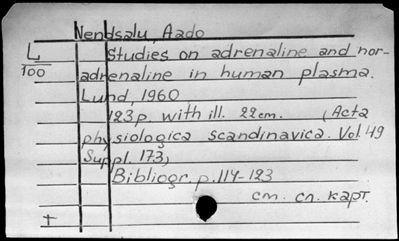 Nendsalu, Aado
L
100
Studies on adrenaline and nor-
adrenaline in human plasma.
Lund, 1960
123p. with ill. 22cm. (Acta
physiologica scandinavica. Vol. 49
Suppl. 173)
Bibliogr. p. 114-123
см. сл. карт.
+